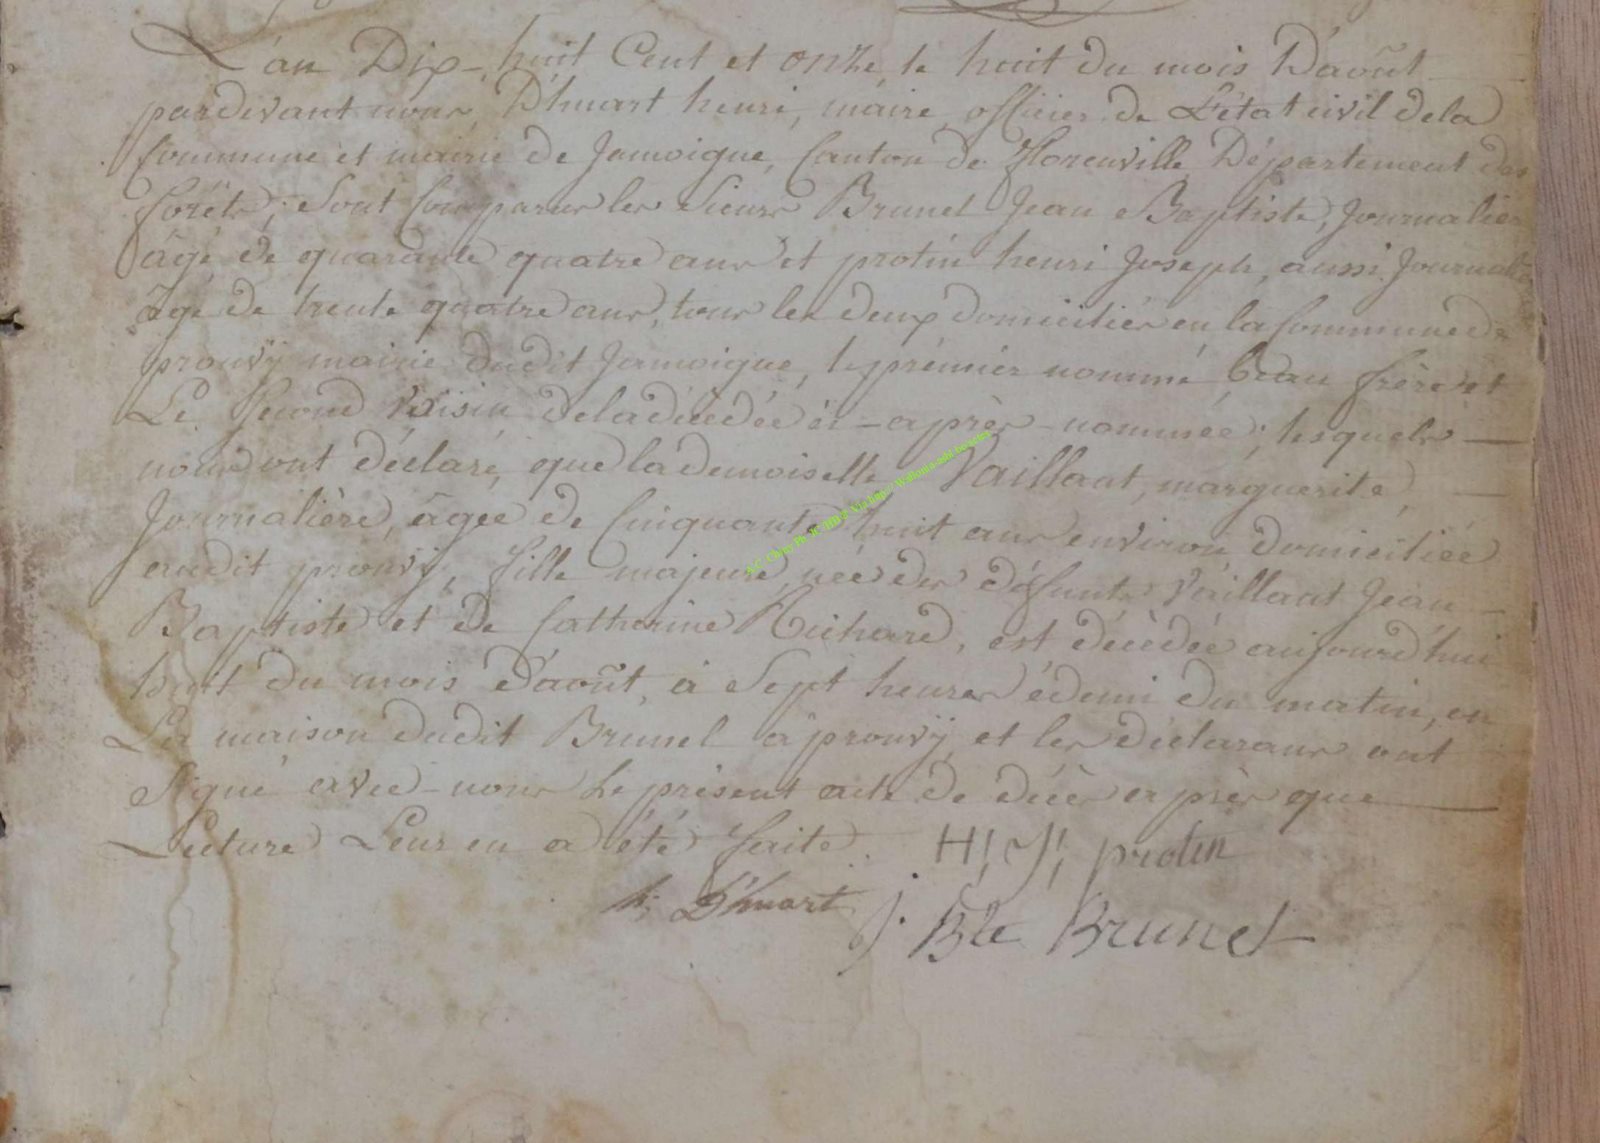 L'an Dix-huit Cent et onze, le huit du mois D'août
pardevant nous, D'huart henri, maire officier de L'état civil dela
Commune et mairie de Jamoigne, Canton de Florenville Département des
forêts; Sont Comparus les Sieurs Brunel Jean Baptiste, Journalier
âgé de quarante quatre ans et protin henri Joseph, aussi Journalier
âgé de trente quatre ans, tous les deux domiciliés en la Commune de
prouvÿ mairie dudit Jamoigne, le prémier nommé beau frère et
Le Second Voisin dela décédée ci-après-nommée; lesquels
nous ont déclaré, que la demoiselle Vaillant, marguerite,
Journalière, âgée de Cinquante huit ans environ domiciliée
audit prouvÿ, fille majeure, née des défunts Vaillant Jean
Baptiste et de Catherine Richard, est décédée aujourd'hui
huit du mois D'août, à Sept heures édemi du matin, en
La maison dudit Brunel à prouvÿ, et les déclarans ont
Signé avec-nous le présent acte de décès après que
Lecture Leur en a été faite.
H! J! protin
h: D'huart
j. Bte Brunel